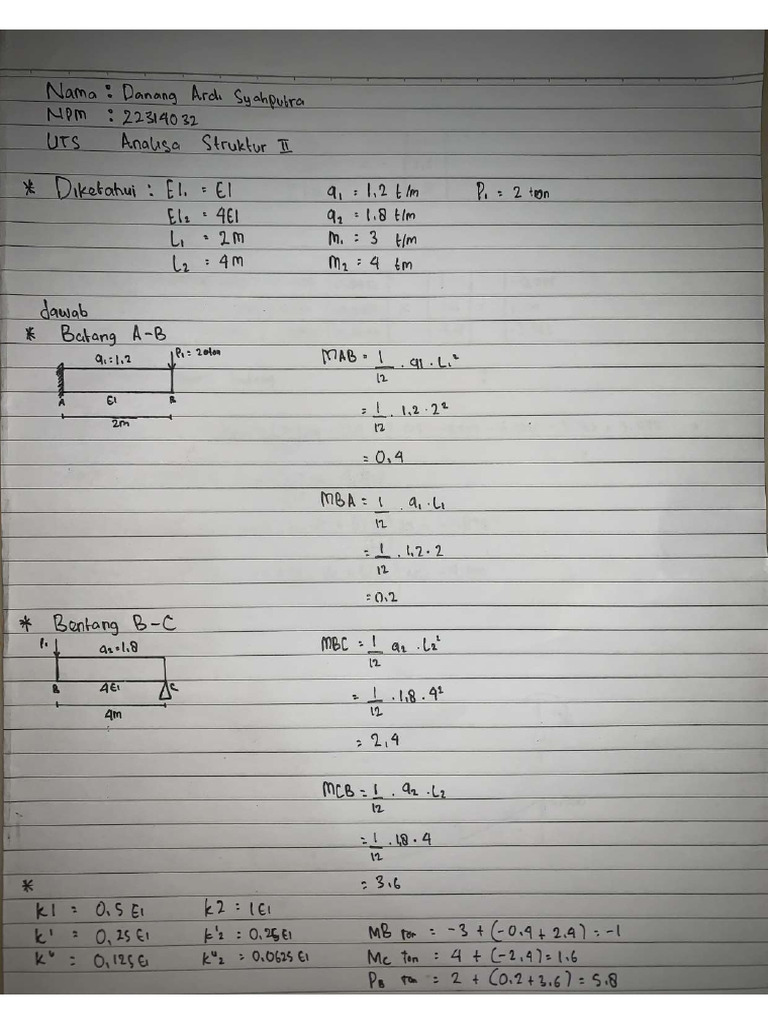 Nama : Danang Ardi Syahputra
NPM : 22314032
UTS Analisa Struktur II
* Diketahui : EI₁ = EI q₁ = 1,2 t/m P₁ = 2 ton
EI₂ = 4EI q₂ = 1,8 t/m
L₁ = 2m m₁ = 3 t/m
L₂ = 4m m₂ = 4 tm
Jawab
* Batang A-B
q₁ = 1,2 P₁ = 2 ton
A EI B
2m
MAB = 1/12 . q1 . L₁²
= 1/12 . 1,2 . 2²
= 0,4
MBA = 1/12 . q₁ . L₁
= 1/12 . 1,2 . 2
= 0,2
* Bentang B-C
P₁ q₂ = 1,8
B 4EI C
4m
MBC = 1/12 q₂ . L₂²
= 1/12 . 1,8 . 4²
= 2,4
MCB = 1/12 . q₂ . L₂
= 1/12 . 1,8 . 4
= 3,6
*
k1 = 0,5 EI k2 = 1EI
k' = 0,25EI k'₂ = 0,25EI MB ton = -3 + (-0,4 + 2,4) = -1
k" = 0,125EI k"₂ = 0,0625EI Mc ton = 4 + (-2,4) = 1,6
P_B ton = 2 + (0,2 + 3,6) = 5,8